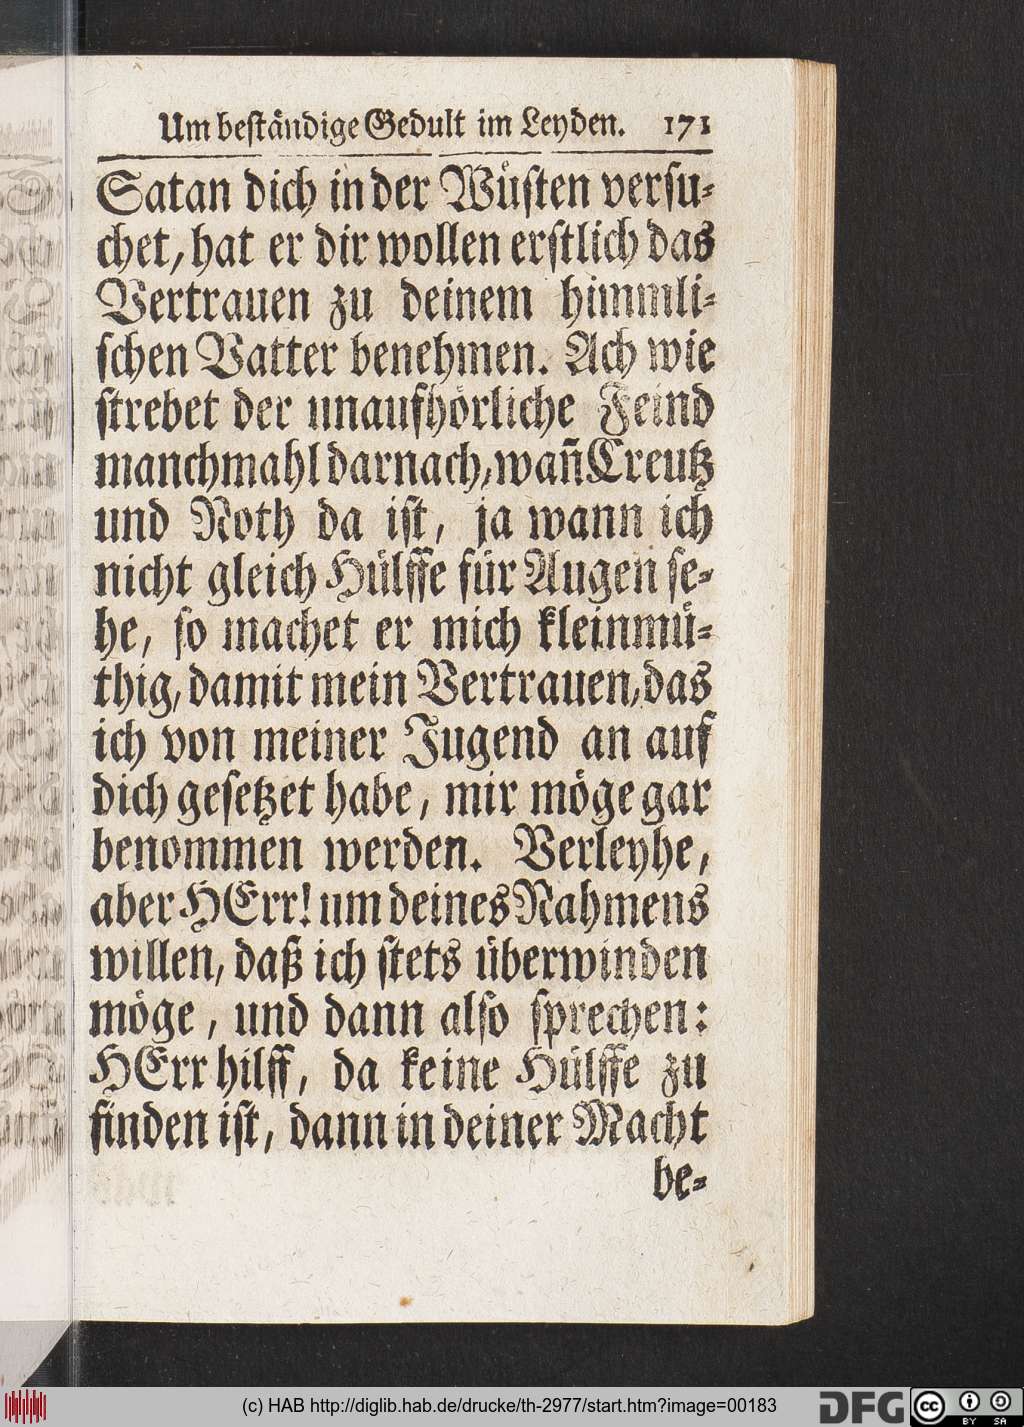 Um beständige Gedult im Leyden. 171
Satan dich in der Wüsten versu-
chet, hat er dir wollen erstlich das
Vertrauen zu deinem himmli-
schen Vatter benehmen. Ach wie
strebet der unaufhörliche Feind
manchmahl darnach, wañ Creutz
und Noth da ist, ja wann ich
nicht gleich Hülffe für Augen se-
he, so machet er mich kleinmü-
thig, damit mein Vertrauen, das
ich von meiner Jugend an auf
dich gesetzet habe, mir möge gar
benommen werden. Verleyhe,
aber HErr! um deines Nahmens
willen, daß ich stets überwinden
möge, und dann also sprechen:
HErr hilff, da keine Hülffe zu
finden ist, dann in deiner Macht
be-
(c) HAB http://diglib.hab.de/drucke/th-2977/start.htm?image=00183
DFG cc BY SA